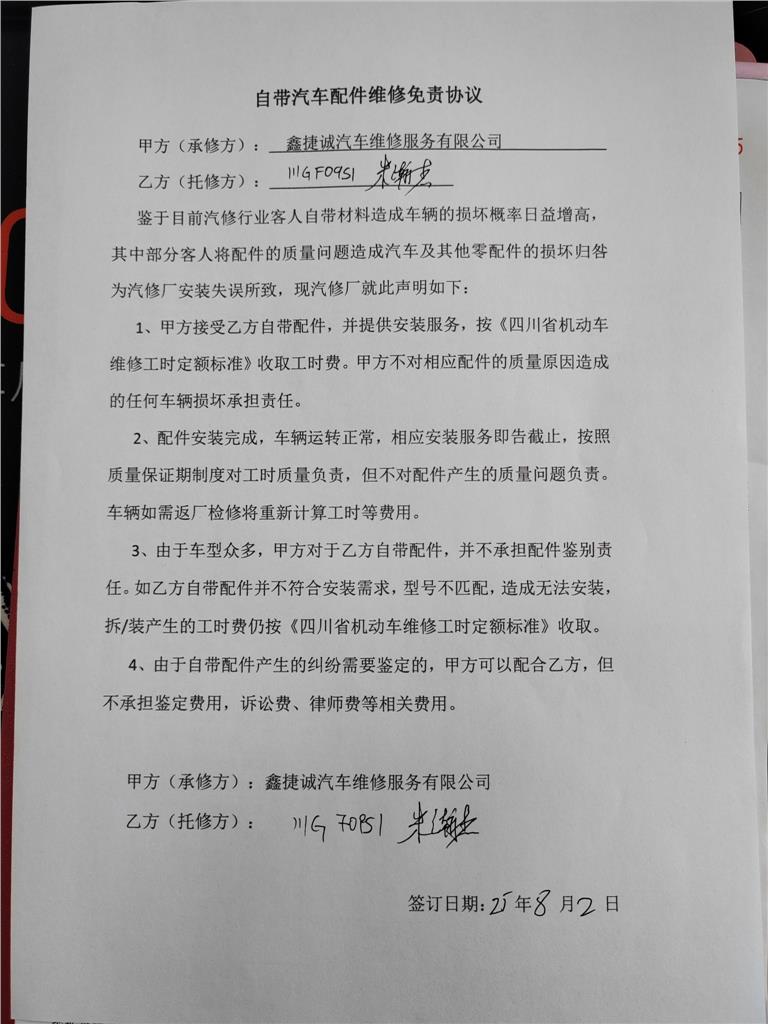 自带汽车配件维修免责协议
甲方（承修方）: 鑫捷诚汽车维修服务有限公司
乙方（托修方）: 川G F09S1 朱瀚杰
鉴于目前汽修行业客人自带材料造成车辆的损坏概率日益增高，
其中部分客人将配件的质量问题造成汽车及其他零配件的损坏归咎
为汽修厂安装失误所致，现汽修厂就此声明如下：
1、甲方接受乙方自带配件，并提供安装服务，按《四川省机动车
维修工时定额标准》收取工时费。甲方不对相应配件的质量原因造成
的任何车辆损坏承担责任。
2、配件安装完成，车辆运转正常，相应安装服务即告截止，按照
质量保证期制度对工时质量负责，但不对配件产生的质量问题负责。
车辆如需返厂检修将重新计算工时等费用。
3、由于车型众多，甲方对于乙方自带配件，并不承担配件鉴别责
任。如乙方自带配件并不符合安装需求，型号不匹配，造成无法安装，
拆/装产生的工时费仍按《四川省机动车维修工时定额标准》收取。
4、由于自带配件产生的纠纷需要鉴定的，甲方可以配合乙方，但
不承担鉴定费用，诉讼费、律师费等相关费用。
甲方（承修方）：鑫捷诚汽车维修服务有限公司
乙方（托修方）： 川G 朱瀚杰
签订日期: 25年8月2日